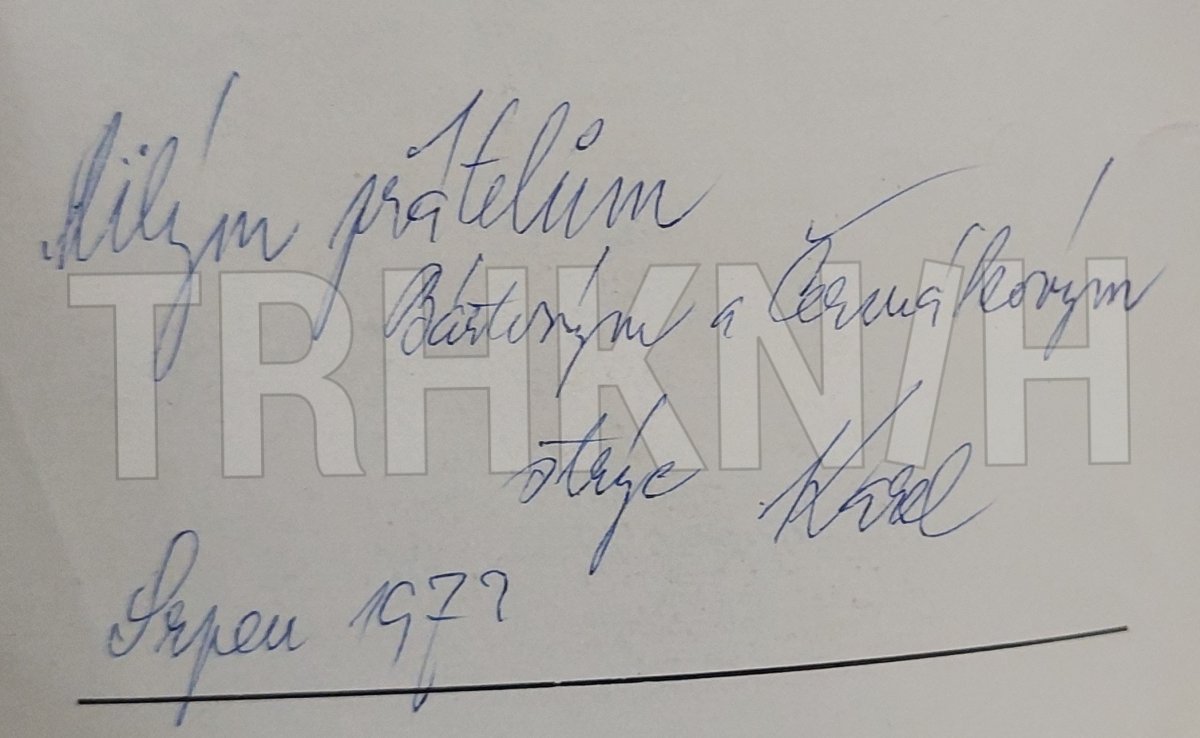 Milým přátelům
Bártovým a Čermákovým
strýc Karel
Srpen 1972
TRHKNIH